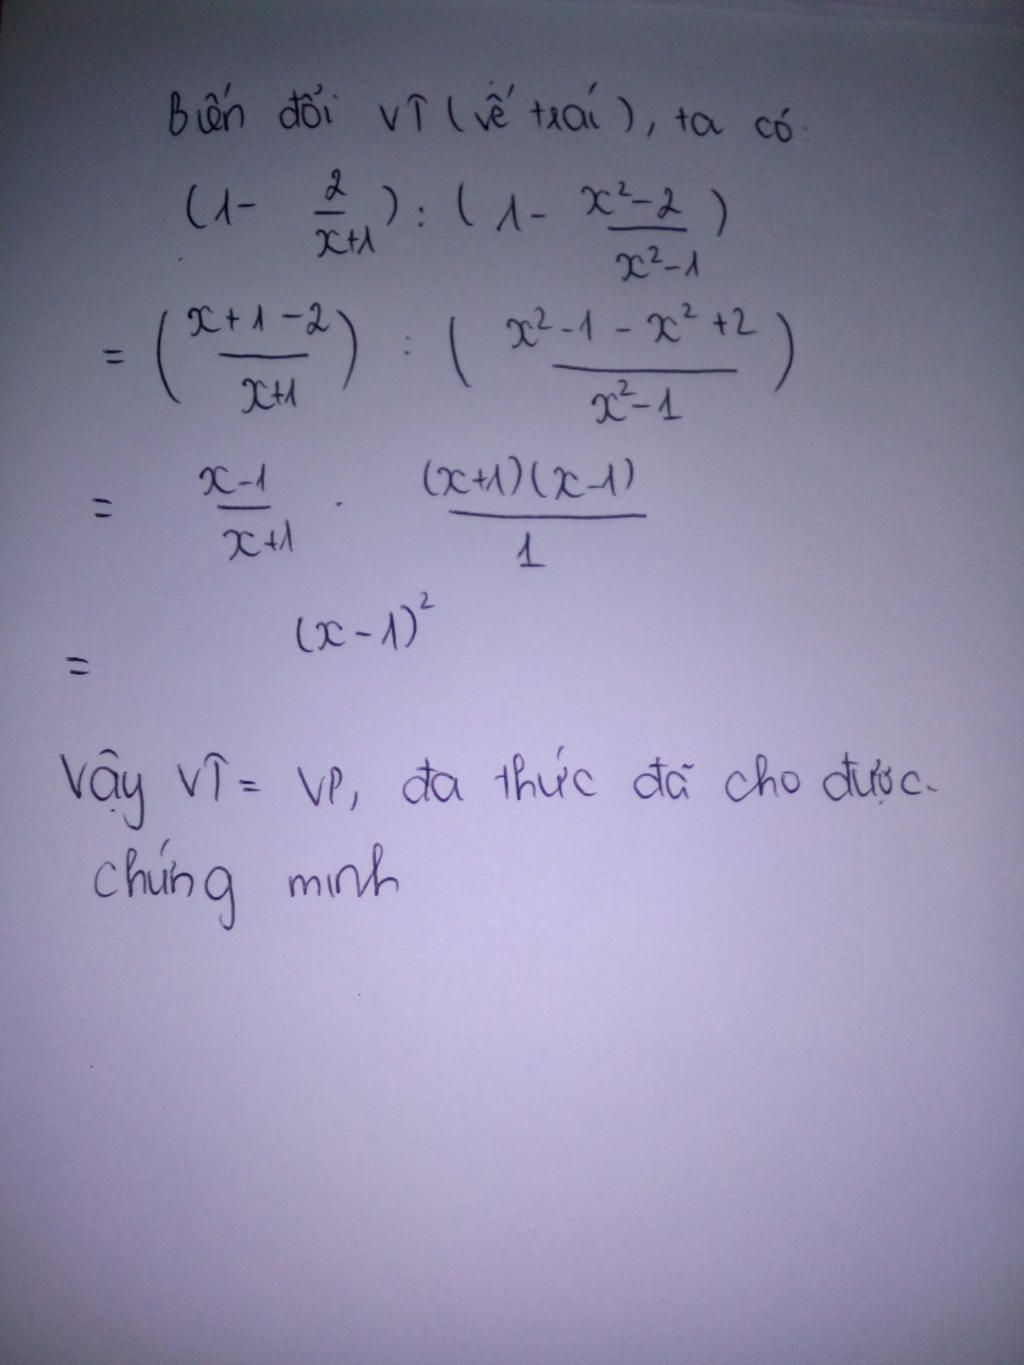 Biến đổi VT (vế trái), ta có:
(1 - 2/(x+1)) : (1 - (x²-2)/(x²-1))
= ((x+1-2)/(x+1)) : ((x²-1-x²+2)/(x²-1))
= (x-1)/(x+1) . ((x+1)(x-1))/1
= (x-1)²
Vậy VT = VP, đa thức đã cho được
chứng minh